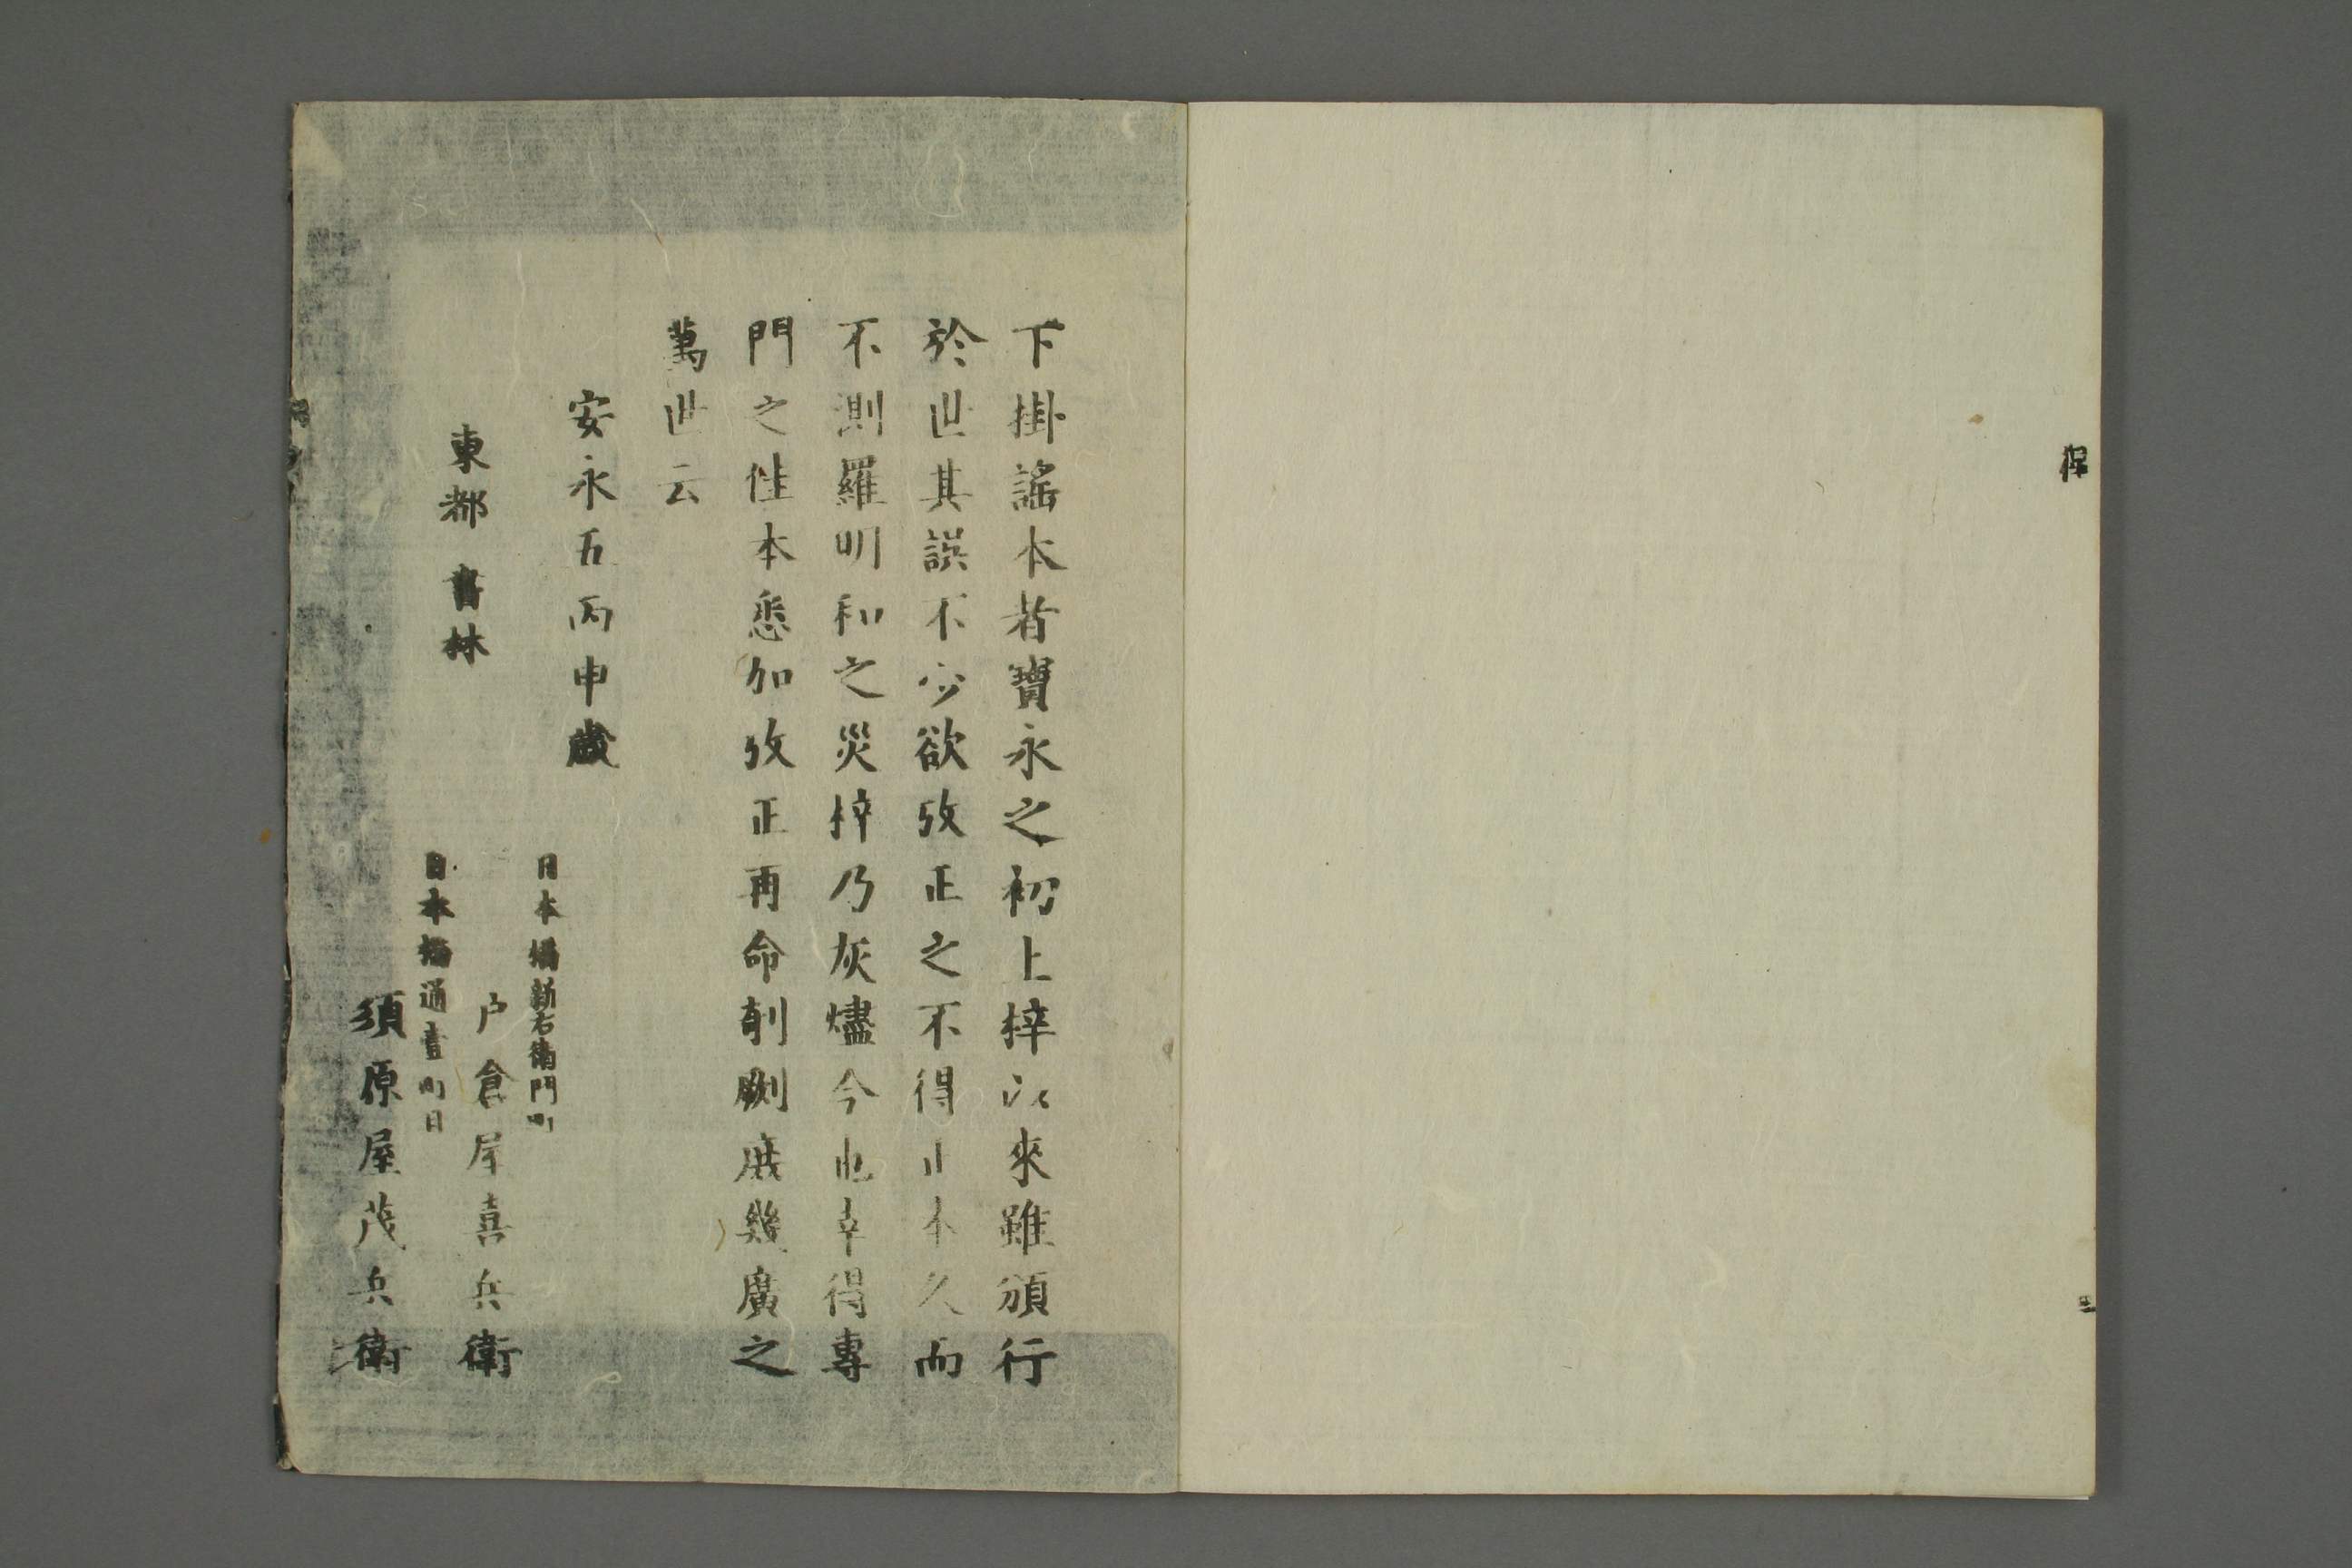 下掛謡本者寶永之初上梓以來雖頒行
於世其誤不少欲改正之不得止本久而
不測羅明和之災梓乃灰燼今也幸得專
門之佳本悉加改正再命剞劂庶幾廣之
萬世云
安永五丙申歳
東都 書林
日本橋新右衛門町
戸倉屋喜兵衛
日本橋通壹町目
須原屋茂兵衛